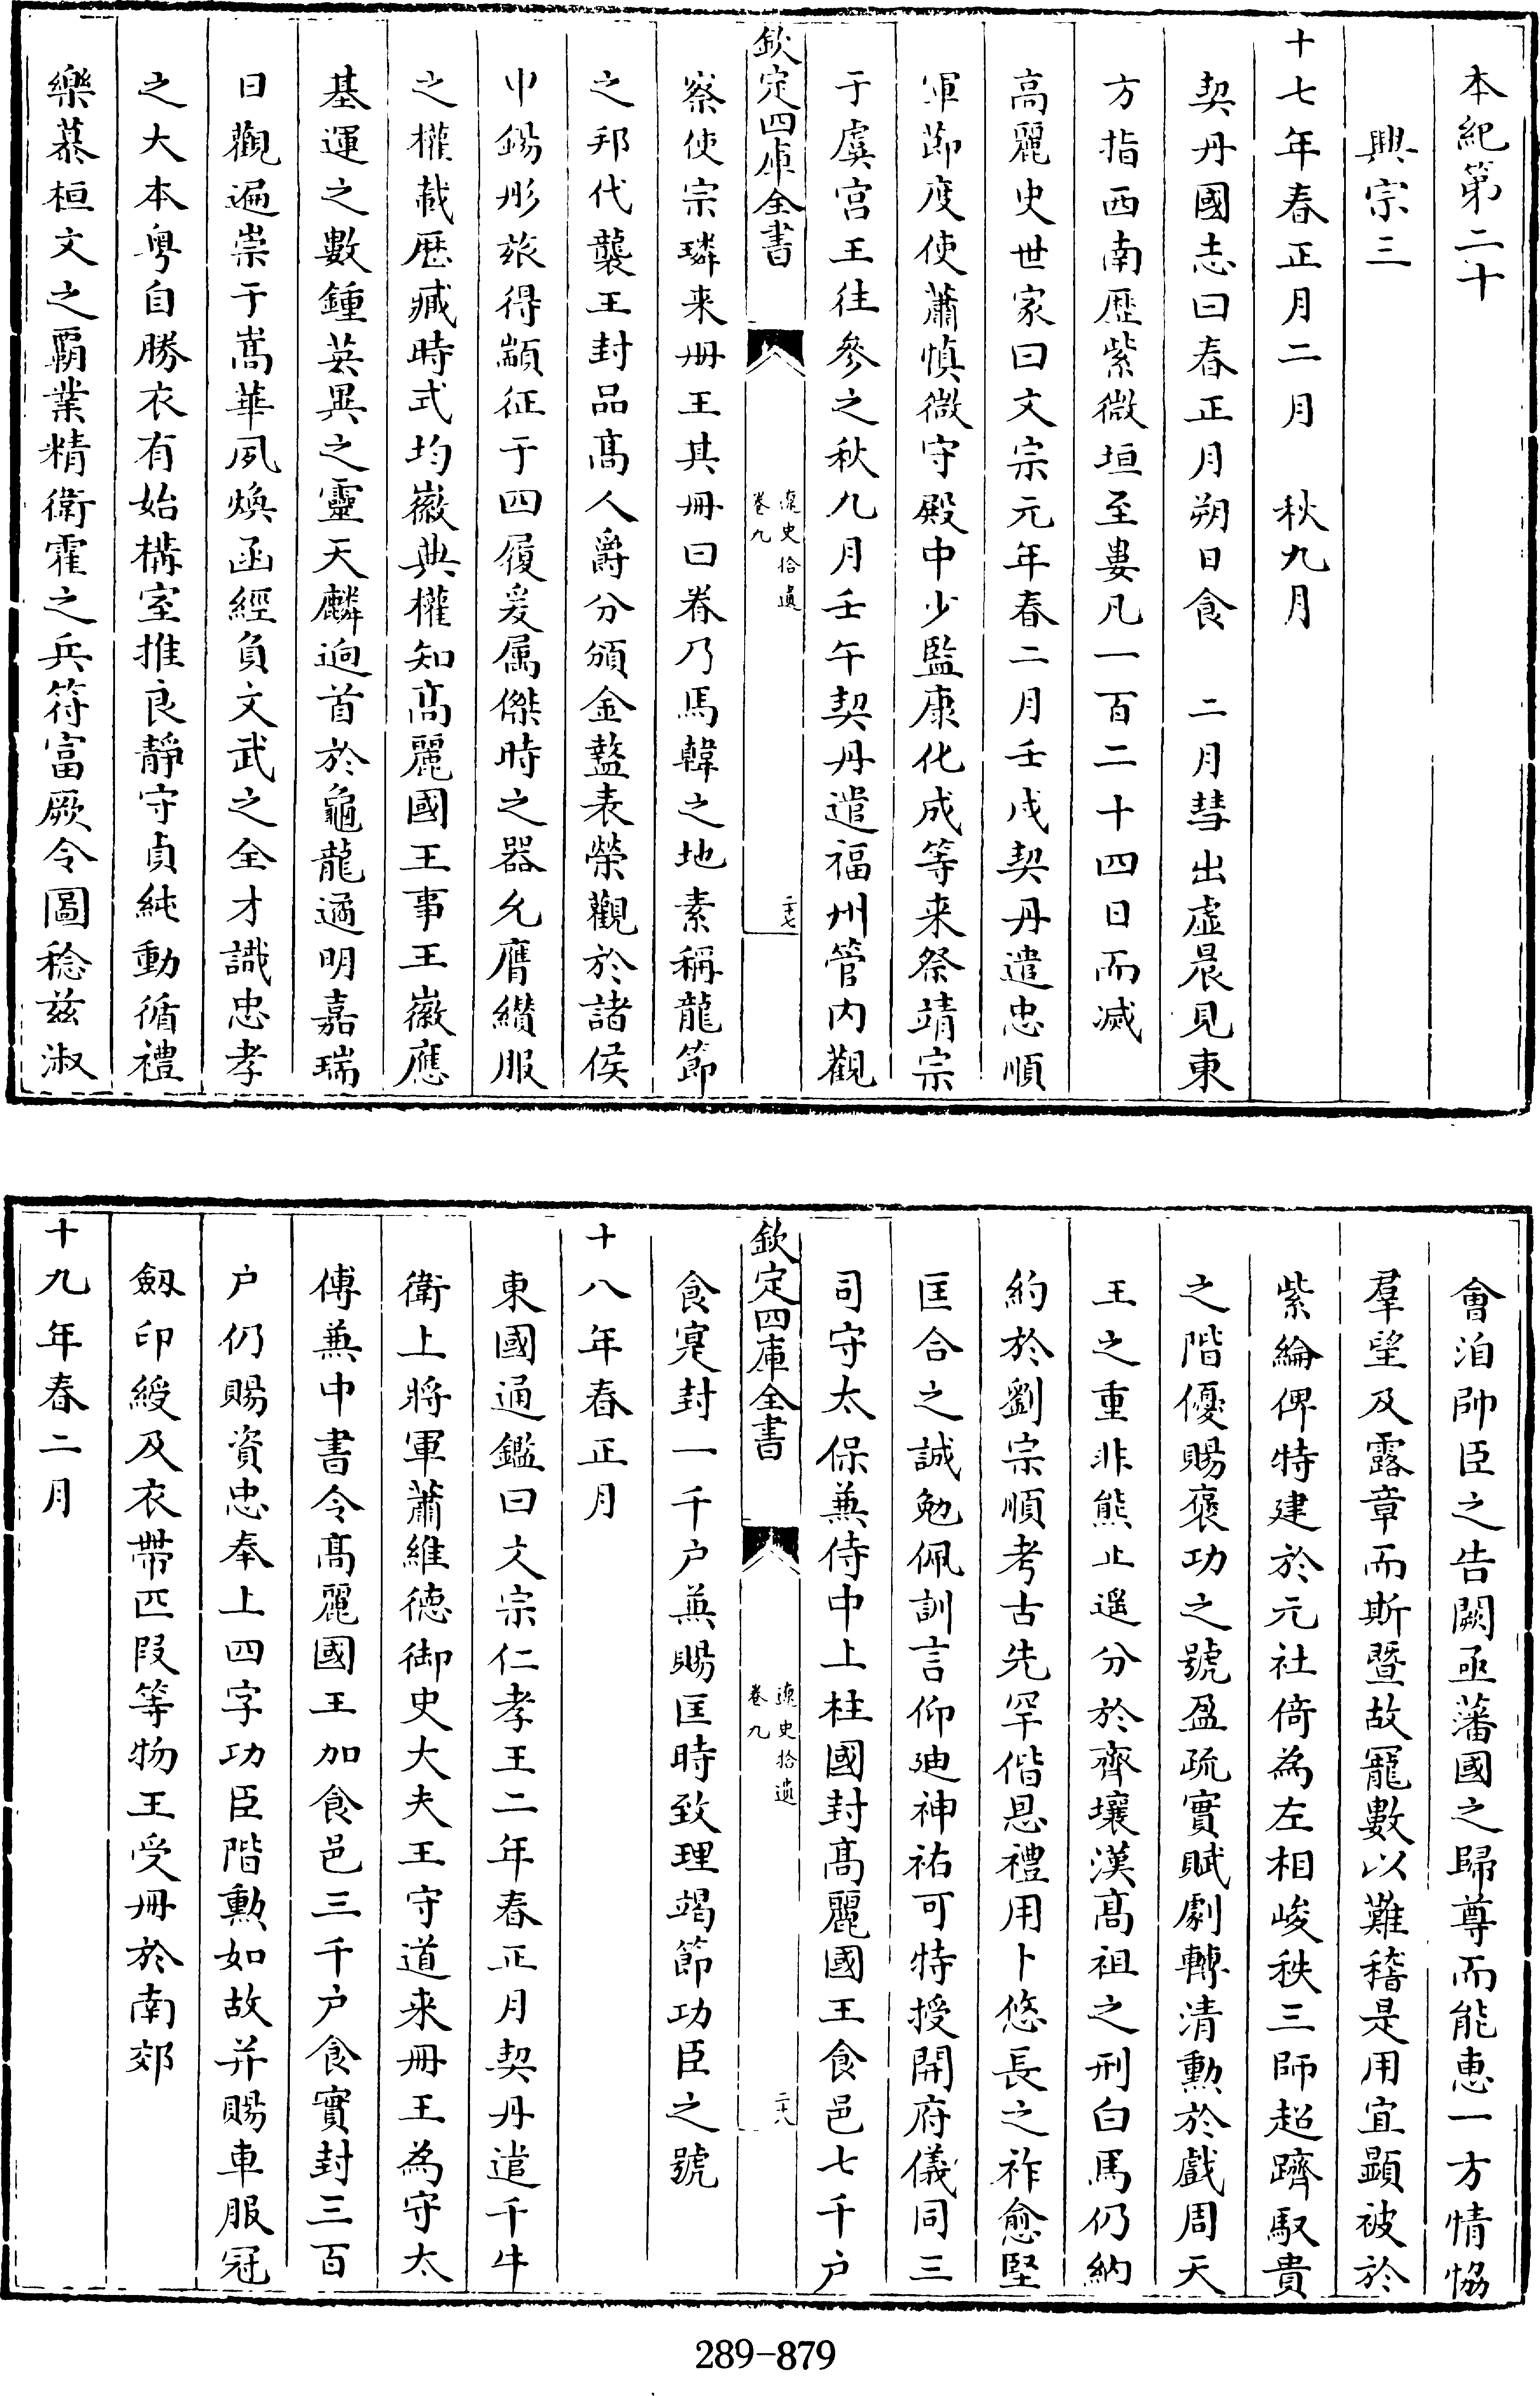 本紀第二十
興宗三
十七年春正月二月　秋九月
契丹國志曰春正月朔日食　二月彗出虚晨見東
方指西南歴紫微垣至婁凡一百二十四日而滅
高麗史世家曰文宗元年春二月壬戌契丹遣忠順
軍節度使蕭慎微守殿中少監康化成等来祭靖宗
于虞宮王往參之秋九月壬午契丹遣福州管内觀
欽定四庫全書
遼史拾遺
卷九
二十七
察使宗璘来冊王其冊曰眷乃馬韓之地素稱龍節
之邦代襲王封品髙人爵分頒金盭表榮觀於諸侯
中錫彤旅得顓征于四履爰属傑時之器允膺纘服
之權載歴臧時式均徽典權知髙麗國王事王徽應
基運之數鍾英異之靈天麟迥首於龜龍遹明嘉瑞
日觀遍崇于嵩華夙煥函經負文武之全才識忠孝
之大本粤自勝衣有始構室推良靜守貞純動循禮
樂慕桓文之覇業精衛霍之兵符富厥令圖稔兹淑
會洎帥臣之告闕亟藩國之歸尊而能惠一方情恊
羣望及露章而斯暨故寵數以難稽是用宜顯被於
紫綸俾特建於元社倚為左相峻秩三師超躋馭貴
之階優賜褒功之號盈疏實賦劇轉清勲於戲周天
王之重非熊止遥分於齊壤漢髙祖之刑白馬仍納
約於劉宗順考古先罕偕恩禮用卜悠長之祚愈堅
匡合之誠勉佩訓言仰廸神祐可特授開府儀同三
司守太保兼侍中上柱國封髙麗國王食邑七千户
欽定四庫全書
遼史拾遺
卷九
二十八
食寔封一千户兼賜匡時致理竭節功臣之號
十八年春正月
東國通鑑曰文宗仁孝王二年春正月契丹遣千牛
衛上將軍蕭維德御史大夫王守道来冊王為守太
傅兼中書令髙麗國王加食邑三千户食實封三百
户仍賜資忠奉上四字功臣階勲如故并賜車服冠
劔印綬及衣帶匹段等物王受冊於南郊
十九年春二月
289-879